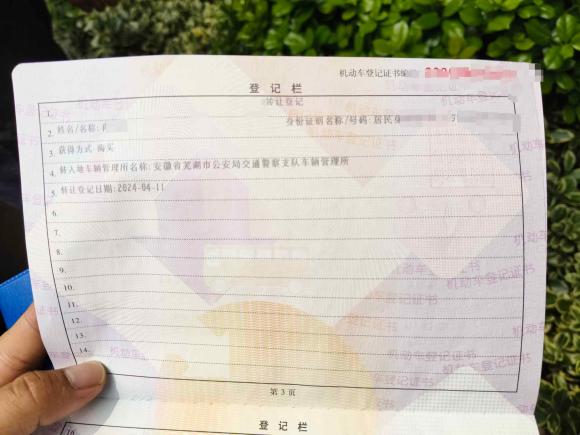 机动车登记证书编
登记栏
1. 转让登记
2. 姓名/名称: 身份证明名称/号码:居民身
3. 获得方式:购买
4. 转入地车辆管理所名称:安徽省芜湖市公安局交通警察支队车辆管理所
5. 转让登记日期:2024-04-11
6.
7.
8.
9.
10.
11.
12.
13.
14.
第3页
登记栏
机动车登记证书
机动车登记证书
机动车登记证书
机动车登记证书